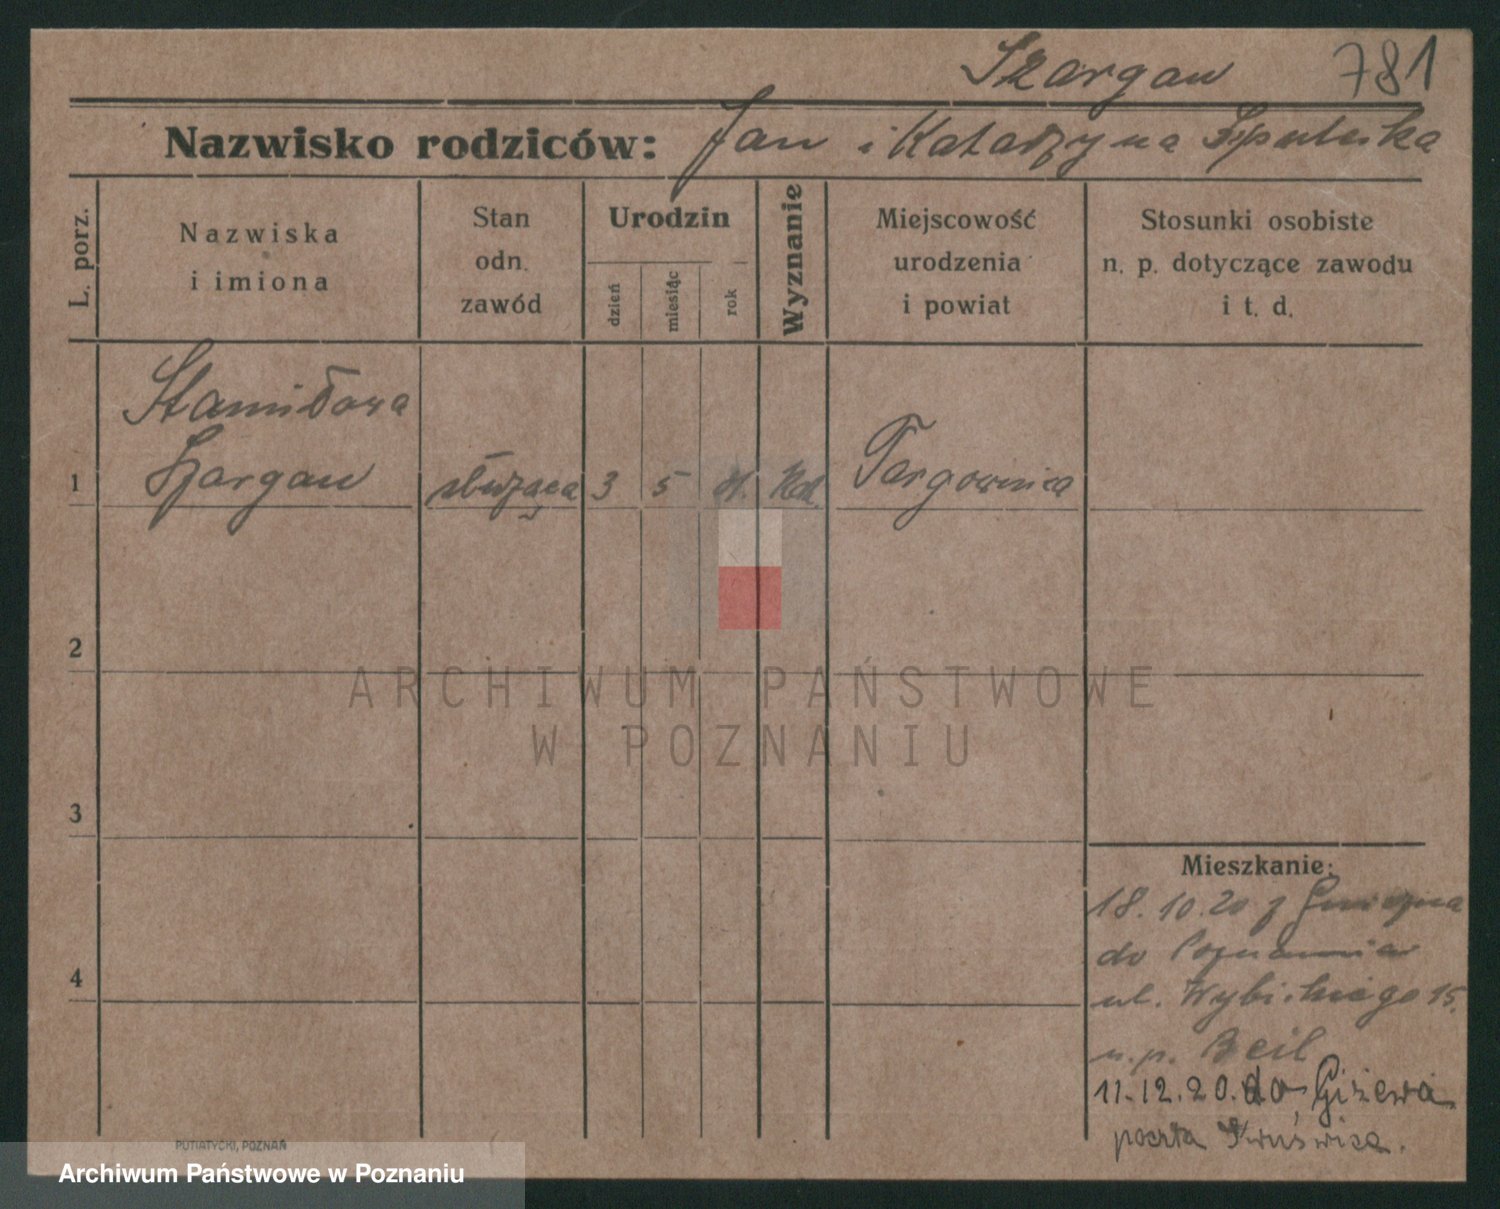 Szargan 781
Nazwisko rodziców: Jan i Katarzyna
L. porz.
Nazwiska
i imiona
Stan
odn.
zawód
Urodzin
dzień
miesiąc
rok
Wyznanie
Miejscowość
urodzenia
i powiat
Stosunki osobiste
n. p. dotyczące zawodu
i t. d.
Stanisława
Szargan
1 służąca 3 5 Kat. Targownica
2
3
4
ARCHIWUM PAŃSTWOWE
W POZNANIU
Mieszkanie:
18.10.20 z Gniezna
do Poznania
ul. Wybickiego 15.
u. p. Beil
11.12.20. do Giżewa
poczta Kruświca.
PUTIATYCKI, POZNAŃ
Archiwum Państwowe w Poznaniu